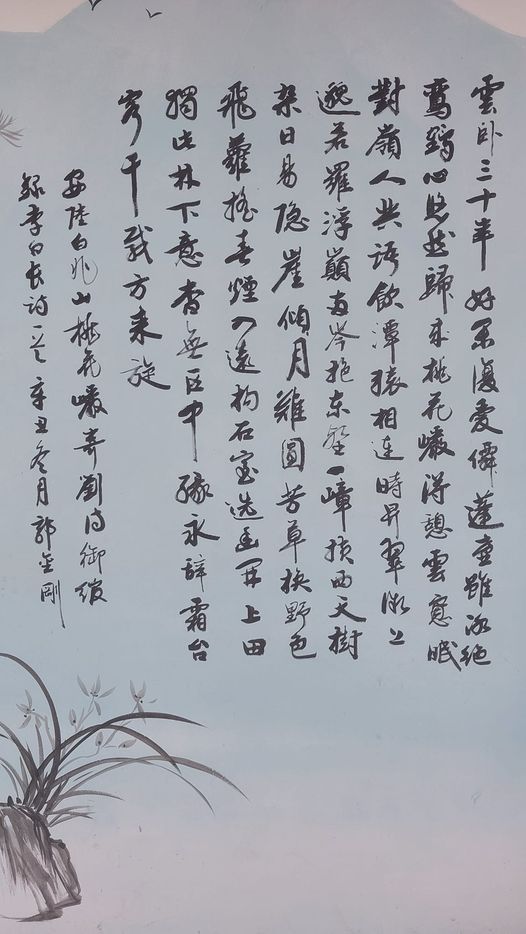 雲卧三十年好閑復愛僊蓬壺雖冥絕
鸞鶴心悠然歸來桃花巖得憩雲窓眠
對嶺人共語飲潭猿相連時昇翠微上
邈若羅浮巔兩岑抱東壑一嶂横西天樹
雜日易隐崖傾月難圓芳草換野色
飛蘿搖春煙入遠构石室选幽開上田
獨此林下意杳無区中緣永辭霜台
客千載方来旋
安陸白兆山桃花巖寄劉侍御綰
録李白長詩一首辛丑冬月郭金剛